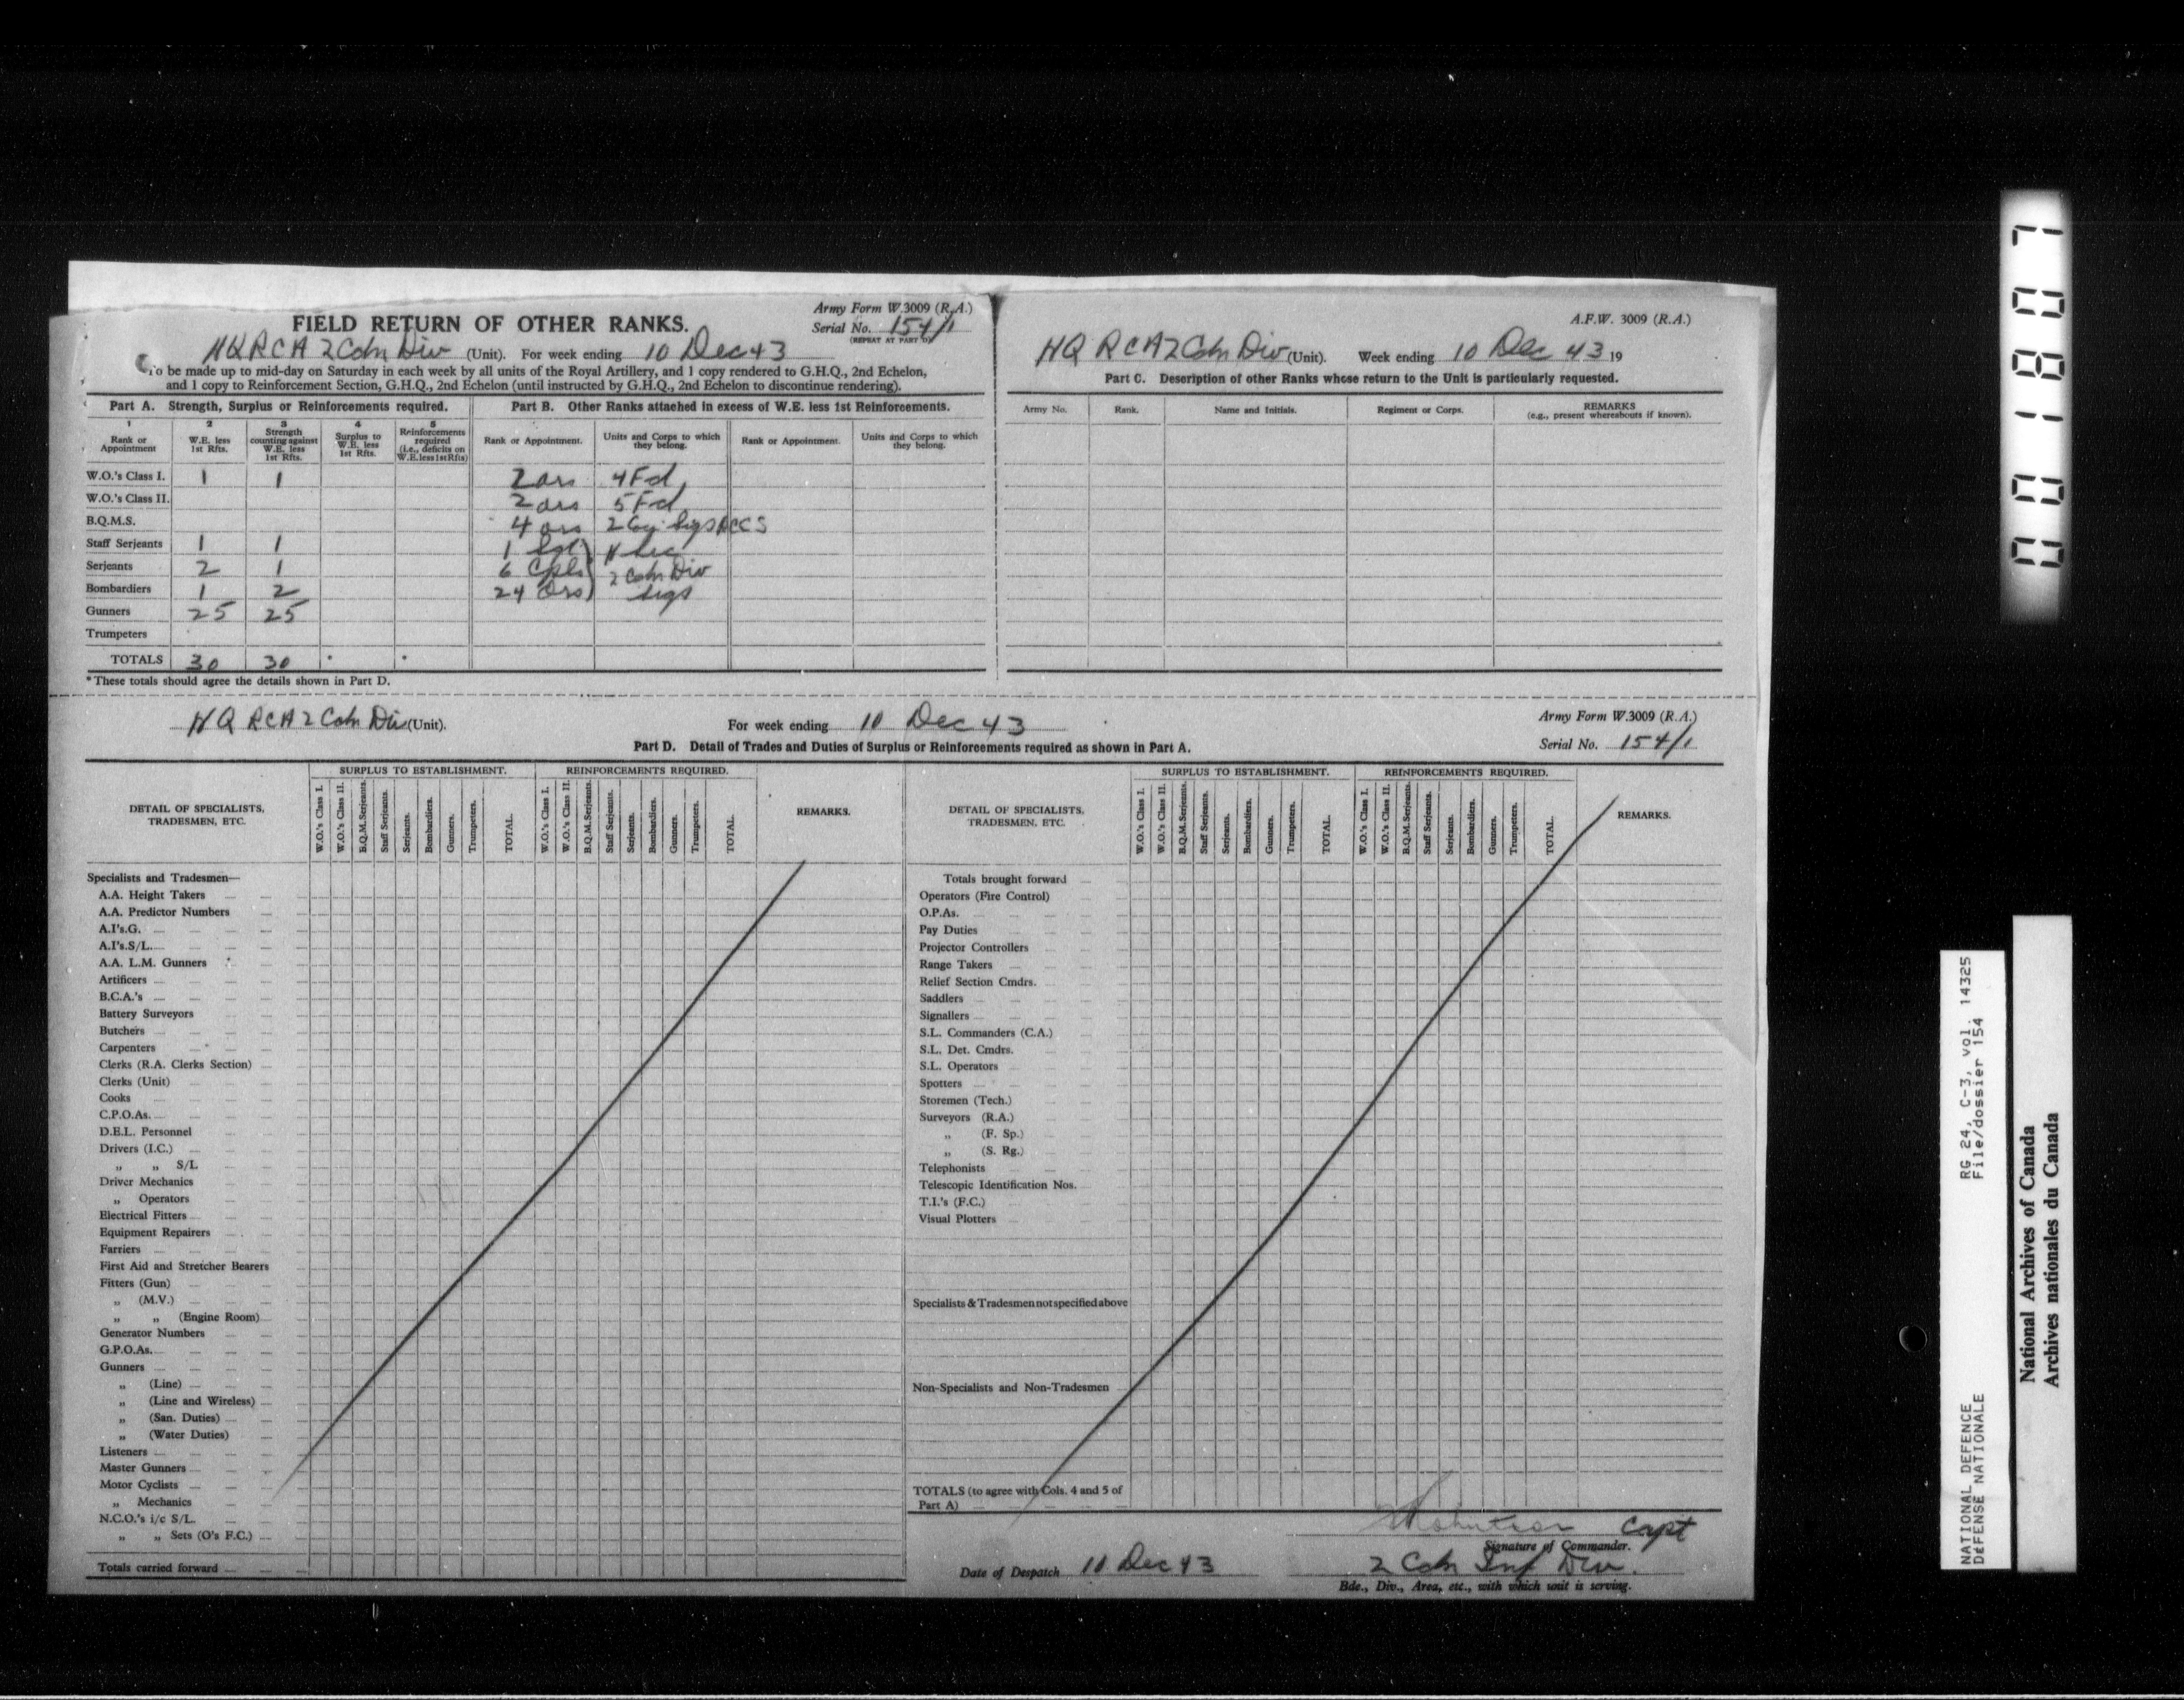 FIELD RETURN OF OTHER RANKS.
Army Form W.3009 (R.A.)
Serial No. 154/1
(REPEAT AT PART D)
HQ RCA 2 Cdn Div (Unit). For week ending 10 Dec 43
To be made up to mid-day on Saturday in each week by all units of the Royal Artillery, and 1 copy rendered to G.H.Q., 2nd Echelon,
and 1 copy to Reinforcement Section, G.H.Q., 2nd Echelon (until instructed by G.H.Q., 2nd Echelon to discontinue rendering).
Part A. Strength, Surplus or Reinforcements required.
1 2 3 4 5
Rank or Appointment
W.E. less 1st Rfts.
Strength counting against W.E. less 1st Rfts.
Surplus to W.E. less 1st Rfts.
Reinforcements required (i.e., deficits on W.E. less 1st Rfts)
W.O.'s Class I. 1 1
W.O.'s Class II.
B.Q.M.S.
Staff Serjeants 1 1
Serjeants 2 1
Bombardiers 1 2
Gunners 25 25
Trumpeters
TOTALS 30 30 * *
* These totals should agree the details shown in Part D.
Part B. Other Ranks attached in excess of W.E. less 1st Reinforcements.
Rank or Appointment.
Units and Corps to which they belong.
Rank or Appointment.
Units and Corps to which they belong.
2 ors 4 Fd
2 ors 5 Fd
4 ors 2 Coy Sigs
1 Sgt H Sec
6 Cpls 2 Cdn Div
24 Ors Sigs
A.F.W. 3009 (R.A.)
HQ RCA 2 Cdn Div (Unit). Week ending 10 Dec 43 19
Part C. Description of other Ranks whose return to the Unit is particularly requested.
Army No.
Rank.
Name and Initials.
Regiment or Corps.
REMARKS
(e.g., present whereabouts if known).
HQ RCA 2 Cdn Div (Unit).
For week ending 10 Dec 43
Army Form W.3009 (R.A.)
Serial No. 154/1
Part D. Detail of Trades and Duties of Surplus or Reinforcements required as shown in Part A.
DETAIL OF SPECIALISTS, TRADESMEN, ETC.
SURPLUS TO ESTABLISHMENT.
W.O.'s Class I.
W.O.'s Class II.
B.Q.M.Serjeants.
Staff Serjeants.
Serjeants.
Bombardiers.
Gunners.
Trumpeters.
TOTAL.
REINFORCEMENTS REQUIRED.
W.O.'s Class I.
W.O.'s Class II.
B.Q.M.Serjeants.
Staff Serjeants.
Serjeants.
Bombardiers.
Gunners.
Trumpeters.
TOTAL.
REMARKS.
Specialists and Tradesmen—
A.A. Height Takers
A.A. Predictor Numbers
A.I's.G.
A.I's.S/L.
A.A. L.M. Gunners
Artificers
B.C.A.'s
Battery Surveyors
Butchers
Carpenters
Clerks (R.A. Clerks Section)
Clerks (Unit)
Cooks
C.P.O.As.
D.E.L. Personnel
Drivers (I.C.)
„ „ S/L
Driver Mechanics
„ Operators
Electrical Fitters
Equipment Repairers
Farriers
First Aid and Stretcher Bearers
Fitters (Gun)
„ (M.V.)
„ „ (Engine Room)
Generator Numbers
G.P.O.As.
Gunners
„ (Line)
„ (Line and Wireless)
„ (San. Duties)
„ (Water Duties)
Listeners
Master Gunners
Motor Cyclists
„ Mechanics
N.C.O.'s i/c S/L.
„ „ Sets (O's F.C.)
Totals carried forward
DETAIL OF SPECIALISTS, TRADESMEN, ETC.
SURPLUS TO ESTABLISHMENT.
W.O.'s Class I.
W.O.'s Class II.
B.Q.M.Serjeants.
Staff Serjeants.
Serjeants.
Bombardiers.
Gunners.
Trumpeters.
TOTAL.
REINFORCEMENTS REQUIRED.
W.O.'s Class I.
W.O.'s Class II.
B.Q.M.Serjeants.
Staff Serjeants.
Serjeants.
Bombardiers.
Gunners.
Trumpeters.
TOTAL.
REMARKS.
Totals brought forward
Operators (Fire Control)
O.P.As.
Pay Duties
Projector Controllers
Range Takers
Relief Section Cmdrs.
Saddlers
Signallers
S.L. Commanders (C.A.)
S.L. Det. Cmdrs.
S.L. Operators
Spotters
Storemen (Tech.)
Surveyors (R.A.)
„ (F. Sp.)
„ (S. Rg.)
Telephonists
Telescopic Identification Nos.
T.I.'s (F.C.)
Visual Plotters
Specialists & Tradesmen not specified above
Non-Specialists and Non-Tradesmen
TOTALS (to agree with Cols. 4 and 5 of
Part A)
Capt
Signature of Commander.
Date of Despatch 10 Dec 43
2 Cdn Inf Div.
Bde., Div., Area, etc., with which unit is serving.
001807
NATIONAL DEFENCE RG 24, C-3, vol. 14325
DEFENSE NATIONALE File/dossier 154
National Archives of Canada
Archives nationales du Canada